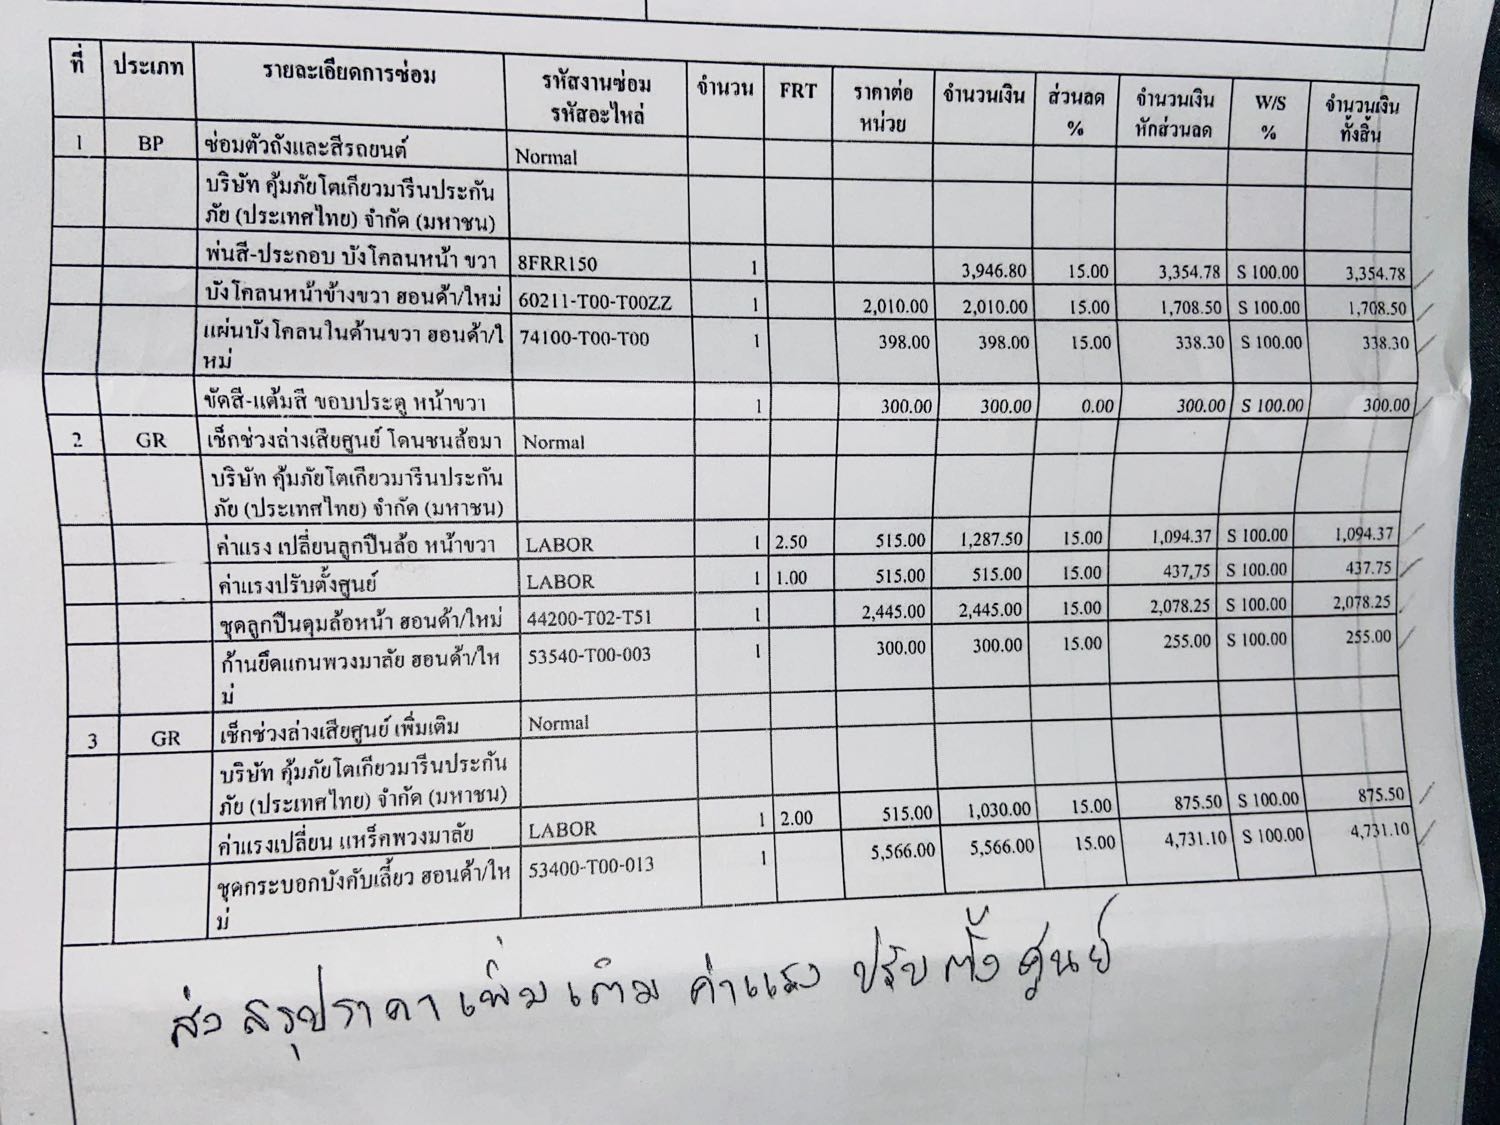 ที่ ประเภท รายละเอียดการซ่อม รหัสงานซ่อม รหัสอะไหล่ จำนวน FRT ราคาต่อหน่วย จำนวนเงิน ส่วนลด % จำนวนเงินหักส่วนลด W/S % จำนวนเงินทั้งสิ้น
1 BP ซ่อมตัวถังและสีรถยนต์ Normal
บริษัท คุ้มภัยโตเกียวมารีนประกัน
ภัย (ประเทศไทย) จำกัด (มหาชน)
พ่นสี-ประกอบ บังโคลนหน้า ขวา 8FRR150 1 3,946.80 15.00 3,354.78 S 100.00 3,354.78
บังโคลนหน้าข้างขวา ฮอนด้า/ใหม่ 60211-T00-T00ZZ 1 2,010.00 2,010.00 15.00 1,708.50 S 100.00 1,708.50
แผ่นบังโคลนในด้านขวา ฮอนด้า/ใ 74100-T00-T00 1 398.00 398.00 15.00 338.30 S 100.00 338.30
หม่
ขัดสี-แต้มสี ขอบประตู หน้าขวา 1 300.00 300.00 0.00 300.00 S 100.00 300.00
2 GR เช็กช่วงล่างเสียศูนย์ โดนชนล้อมา Normal
บริษัท คุ้มภัยโตเกียวมารีนประกัน
ภัย (ประเทศไทย) จำกัด (มหาชน)
ค่าแรง เปลี่ยนลูกปืนล้อ หน้าขวา LABOR 1 2.50 515.00 1,287.50 15.00 1,094.37 S 100.00 1,094.37
ค่าแรงปรับตั้งศูนย์ LABOR 1 1.00 515.00 515.00 15.00 437.75 S 100.00 437.75
ชุดลูกปืนดุมล้อหน้า ฮอนด้า/ใหม่ 44200-T02-T51 1 2,445.00 2,445.00 15.00 2,078.25 S 100.00 2,078.25
ก้านยึดแกนพวงมาลัย ฮอนด้า/ให 53540-T00-003 1 300.00 300.00 15.00 255.00 S 100.00 255.00
ม่
3 GR เช็กช่วงล่างเสียศูนย์ เพิ่มเติม Normal
บริษัท คุ้มภัยโตเกียวมารีนประกัน
ภัย (ประเทศไทย) จำกัด (มหาชน)
ค่าแรงเปลี่ยน แหร็คพวงมาลัย LABOR 1 2.00 515.00 1,030.00 15.00 875.50 S 100.00 875.50
ชุดกระบอกบังคับเลี้ยว ฮอนด้า/ให 53400-T00-013 1 5,566.00 5,566.00 15.00 4,731.10 S 100.00 4,731.10
ม่
ส่ง สรุปราคา เพิ่มเติม ค่าแรง ปรับ ตั้ง ศูนย์